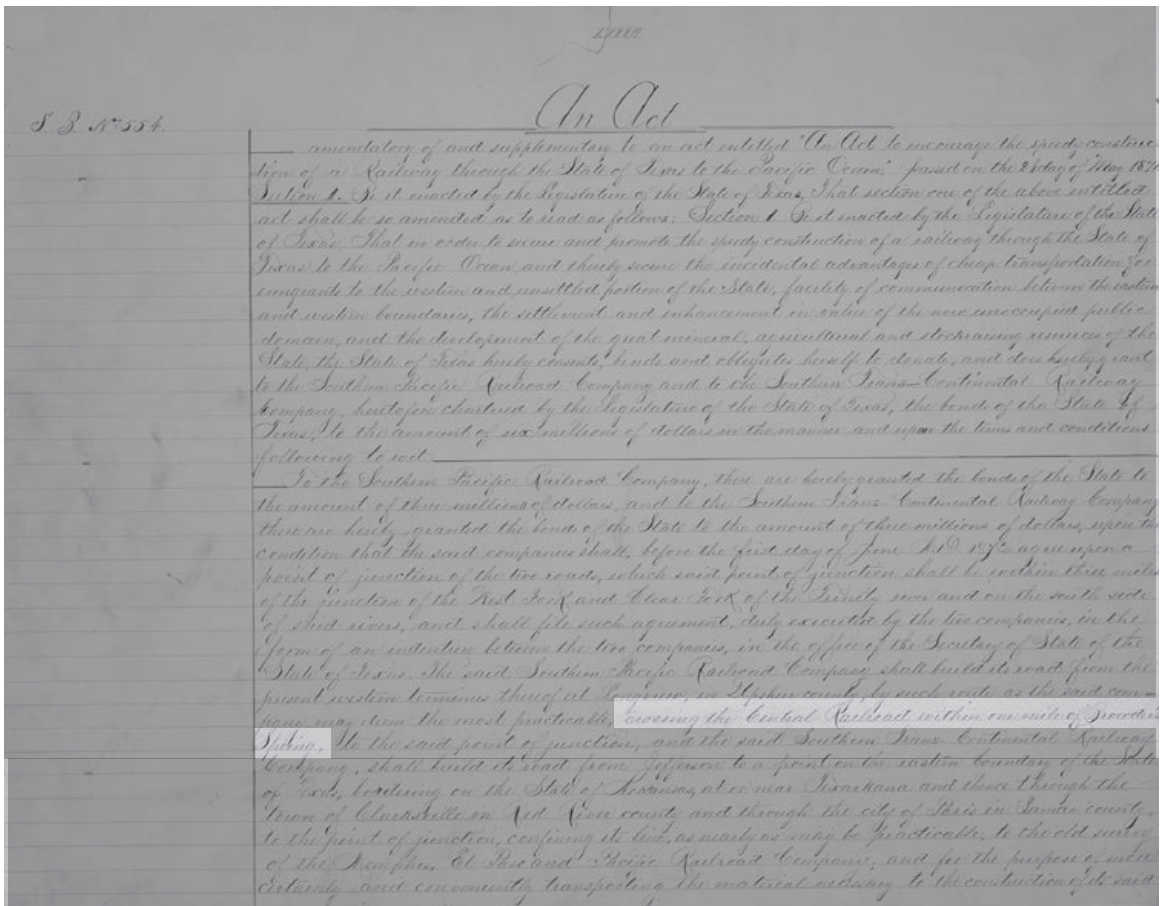 S. B. No 554.
An Act
amendatory of and supplementary to an act entitled "An Act to encourage the speedy construc-
tion of a Railway through the State of Texas to the Pacific Ocean" passed on the 22d day of May 1871
Section 1. Be it enacted by the Legislature of the State of Texas, That section one of the above entitled
act shall be so amended as to read as follows: Section 1 Be it enacted by the Legislature of the State
of Texas, That in order to secure and promote the speedy construction of a railway through the State of
Texas to the Pacific Ocean, and thereby secure the incidental advantages of cheap transportation for
emigrants to the western and unsettled portion of the State, facility of communication between the eastern
and western boundaries, the settlement and enhancement in value of the now unoccupied public
domain, and the development of the great mineral, agricultural and stockraising resources of the
State, the State of Texas hereby consents, binds and obligates herself to donate, and does hereby grant
to the Southern Pacific Railroad Company and to the Southern Trans-Continental Railway
Company, heretofore chartered by the Legislature of the State of Texas, the bonds of the State of
Texas, to the amount of six millions of dollars in the manner, and upon the terms and conditions
following to wit
To the Southern Pacific Railroad Company, there are hereby granted the bonds of the State to
the amount of three millions of dollars, and to the Southern Trans-Continental Railway Company
there are hereby granted the bonds of the State to the amount of three millions of dollars, upon the
condition that the said companies shall, before the first day of June A.D 1872 agree upon a
point of junction of the two roads, which said point of junction shall be within three miles
of the junction of the West Fork and Clear Fork of the Trinity river and on the south side
of said rivers, and shall file such agreement, duly executed by the two companies, in the
form of an indenture between the two companies, in the office of the Secretary of State of the
State of Texas. The said Southern Pacific Railroad Company shall build its road from the
present western terminus thereof at Longview, in Upshur county, by such route as the said com-
pany may deem the most practicable, crossing the Central Railroad within one mile of Browder's
Spring, to the said point of junction, and the said Southern Trans-Continental Railway
Company, shall build its road from Jefferson to a point on the eastern boundary of the State
of Texas, bordering on the State of Arkansas, at or near Texarkana and thence through the
town of Clarksville in Red River county and through the city of Paris in Lamar county,
to the point of junction, confining its line, as nearly as may be practicable, to the old survey
of the Memphis, El Paso and Pacific Railroad Company; and for the purpose of more
certainly and conveniently transporting the material necessary to the construction of its said